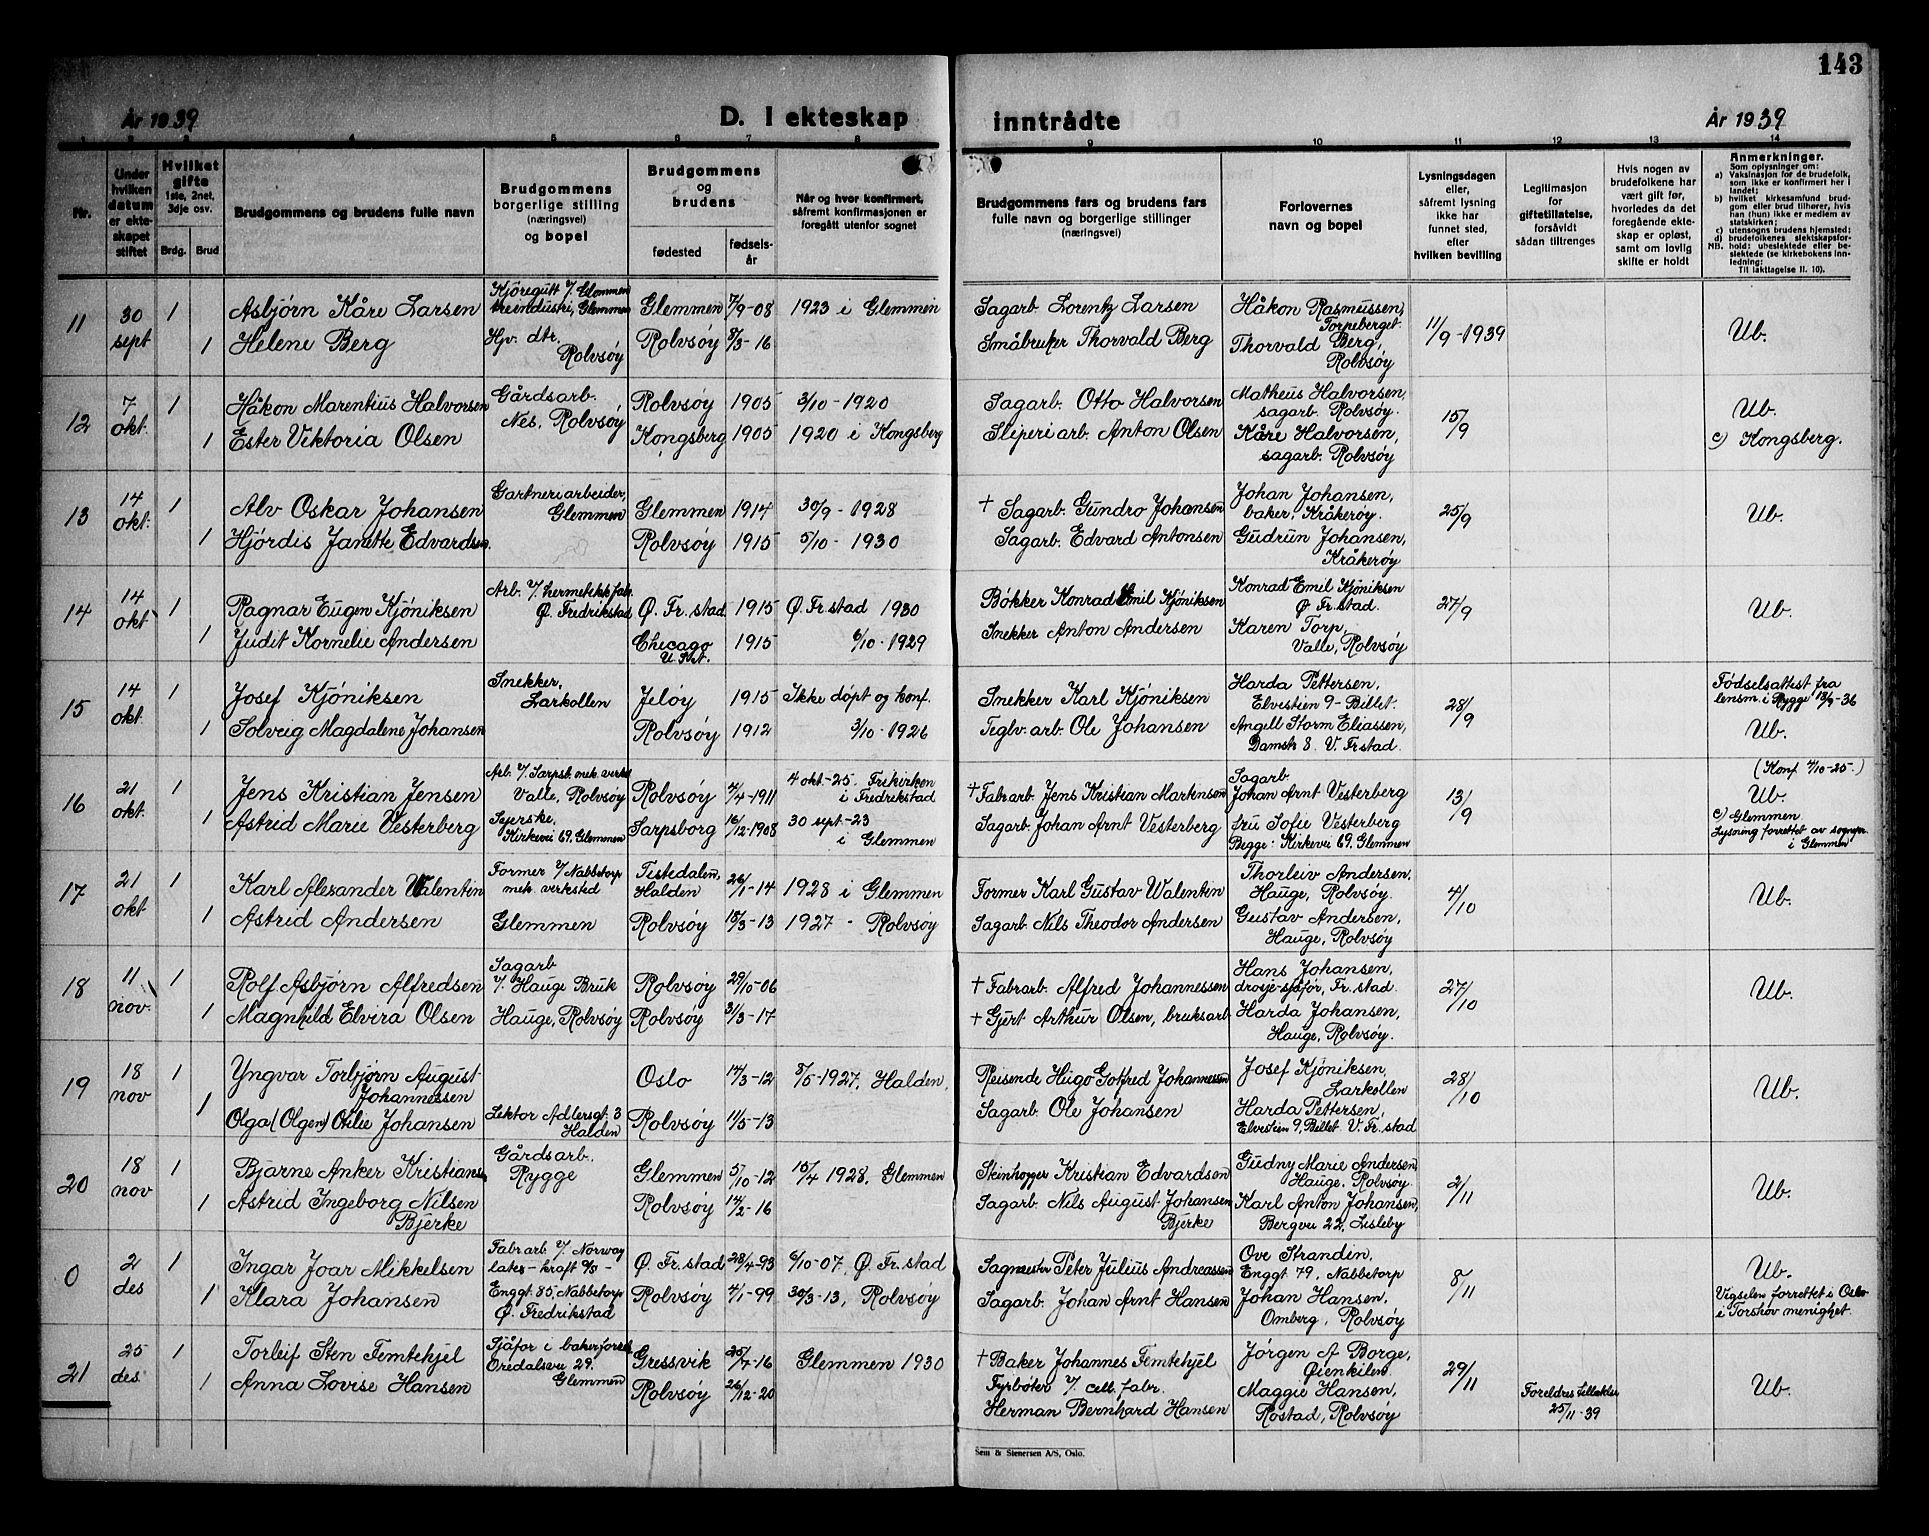 143
År 1939
D. I ekteskap inntrådte
År 1939
1 2 3 4 5 6 7 8 9 10 11 12 13 14
Nr.
Under hvilken datum er ekteskapet stiftet
Hvilket gifte 1ste, 2net, 3dje osv.
Brdg. Brud
Brudgommens og brudens fulle navn
Brudgommens borgerlige stilling (næringsvei) og bopel
Brudgommens og brudens
fødested
fødselsår
Når og hvor konfirmert, såfremt konfirmasjonen er foregått utenfor sognet
Brudgommens fars og brudens fars fulle navn og borgerlige stillinger (næringsvei)
Forlovernes navn og bopel
Lysningsdagen eller, såfremt lysning ikke har funnet sted, efter hvilken bevilling
Legitimasjon for giftetillatelse, forsåvidt sådan tiltrenges
Hvis nogen av brudefolkene har vært gift før, hvorledes da det foregående ekteskap er opløst, samt om lovlig skifte er holdt
Anmerkninger.
Som oplysninger om:
a) Vaksinasjon for de brudefolk, som ikke er konfirmert her i landet;
b) hvilket kirkesamfund brudgom eller brud tilhører, hvis han (hun) ikke er medlem av statskirken;
c) utensogns brudens hjemsted;
d) brudefolkenes slektskapsforhold: ubeslektede eller beslektede (se kirkebokens innledning:
NB.
Til iakttagelse II. 10).
11 30 sept 1 Asbjørn Kåre Larsen Kjöregutt v/. Glommen treindustri, Glemmen Glemmen 7/9-08 1923 i Glemmen Sagarb. Lorentz Larsen Håkon Rasmussen, Torpeberget. 11/9-1939 Ub.
1 Helene Berg Hjv. dtr. Rolvsöy Rolvsöy 8/3-16 Småbruker Thorvald Berg Thorvald Berg, Rolvsöy
12 7 okt. 1 Håkon Marentius Halvorsen Gårdsarb. Nes, Rolvsöy Rolvsöy 1905 3/10-1920 Sagarb. Otto Halvorsen Matheus Halvorsen, sagarb. Rolvsöy. 15/9 Ub.
1 Ester Viktoria Olsen Kongsberg 1905 1920 i Kongsberg Sliperiarb. Anton Olsen Kåre Halvorsen, sagarb. Rolvsöy c) Kongsberg.
13 14 okt. 1 Alv Oskar Johansen Gartneriarbeider, Glemmen Glemmen 1914 30/9-1928 † Sagarb. Gundro Johansen Johan Johansen, baker, Kråkeröy. 25/9 Ub.
1 Hjördis Janette Edvardsen. Rolvsöy 1915 5/10-1930 Sagarb. Edvard Antonsen Gudrun Johansen, Kråkeröy
14 14 okt 1 Ragnar Eugen Kjöniksen Arb. v/. hermetikkfabr. Ø. Fredrikstad Ø. Fr.stad 1915 Ø. Fr.stad 1930 Bökker Konrad Emil Kjöniksen Konrad Emil Kjöniksen Ø Fr.stad. 27/9 Ub.
1 Judit Kornelie Andersen Chicago U.St. 1915 6/10-1929 Snekker Anton Andersen Karen Torp, Valle, Rolvsöy
15 14 okt. 1 Josef Kjöniksen Snekker, Larkollen Jelöy 1915 Ikke döpt og konf. Snekker Karl Kjöniksen Harda Pettersen, Elvestien 9-Billet. 28/9 Födselsattest fra lensm. i Rygge 13/9-36
1 Solveig Magdalene Johansen Rolvsöy 1912 3/10-1926 Teglv.arb. Ole Johansen Angill Storm Eliassen, Damstr 8. V Frstad. Ub.
16 21 okt. 1 Jens Kristian Jensen Arb. v/. Sarpsb. mek. verks Valle, Rolvsöy Rolvsöy 4/4-1911 4 okt-25. Frikirken i Fredrikstad † Fabrarb. Jens Kristian Martinsen Sagarb Johan Arnt Vesterberg 13/9 (Konf 4/10-25.) Ub.
1 Astrid Marie Vesterberg Syerske, Kirkevei 69, Glemmen Sarpsborg 16/12-1908 30 sept-23 i Glemmen Sagarb. Johan Arnt Vesterberg fru Sofie Vesterberg Begge: Kirkevei 69, Glemmen c) Glemmen Lysning forrettet av sognepr. i Glemmen
17 21 okt 1 Karl Alexander Walentin Former v/ Nabbetorp mek. verksted Tistedalen, Halden 26/1-14 1928 i Glemmen Former Karl Gustav Walentin Thorleiv Andersen, Hauge, Rolvsöy. 4/10 Ub.
1 Astrid Andersen Glemmen Rolvsöy 15/3-13 1927 - Rolvsöy Sagarb. Nils Theodor Andersen Gustav Andersen, Hauge, Rolvsöy
18 11 nov. 1 Rolf Asbjørn Alfredsen Sagarb v/. Hauge Bruk Rolvsöy 29/10-06 † Fabrarb. Alfred Johannessen Hans Johansen, drosje-sjåför, Fr.stad. 27/10 Ub.
1 Magnhild Elvira Olsen Hauge, Rolvsöy Rolvsöy 31/3-17 † Gjert Arthur Olsen, bruksarb Harda Johansen, Hauge, Rolvsöy.
19 18 nov 1 Yngvar Torbjørn August Johannessen Oslo 14/3-12 8/5-1927, Halden, Reisende Hugo Gotfred Johannessen Josef Kjöniksen, Larkollen 28/10 Ub.
1 Olga (Olgen) Otilie Johansen Lektor Adlersgt. 3 Halden Rolvsöy 11/5-13 Sagarb. Ole Johansen Harda Pettersen, Elvestien 9, Billet. V. Fr.stad
20 18 nov 1 Bjarne Anker Kristiansen Gårdsarb. Rygge Glemmen 5/10-12 15/4 1928, Glemmen Steinhogger Kristian Edvardsen Gudny Marie Andersen Hauge, Rolvsöy. 2/11 Ub.
1 Astrid Ingeborg Nilsen Bjerke Rolvsöy 14/2-16 Sagarb. Nils August Johansen Bjerke Karl Anton Johansen, Bergvei 22, Lisleby
0 2 des 1 Ingar Joar Mikkelsen Fabrarb. v/. Norway lates-kraft %s- Ø. Fr.stad 28/4-93 6/10-07, Ø. Fr.stad Sagmester Peter Julius Andreassen Ove Strandin, Enggt 79, Nabbetorp 8/11 Ub.
1 Klara Johansen Enggt. 85, Nabbetorp Ø. Fredrikstad Rolvsöy 4/1-99 30/3-13, Rolvsöy Sagarb. Johan Arnt Hansen Johan Hansen, Omberg, Rolvsöy Vigselen forrettet i Oslo i Torshov menighet.
21 25 des. 1 Torleif Sten Femtehjel Sjåför i bakerforretn Oredalsvei 29. Glemmen Gressvik 25/4-16 Glemmen 1930 † Baker Johannes Femtehjel Jörgen A Borge, Øienkilen 29/11 Ub.
1 Anna Lovise Hansen Rolvsöy 26/12-20 Fyrböter v/. cell. fabr. Herman Bernhard Hansen Maggie Hansen, Rostad, Rolvsöy Foreldres tillatelse 25/11-39
Sem & Stenersen A/S, Oslo.